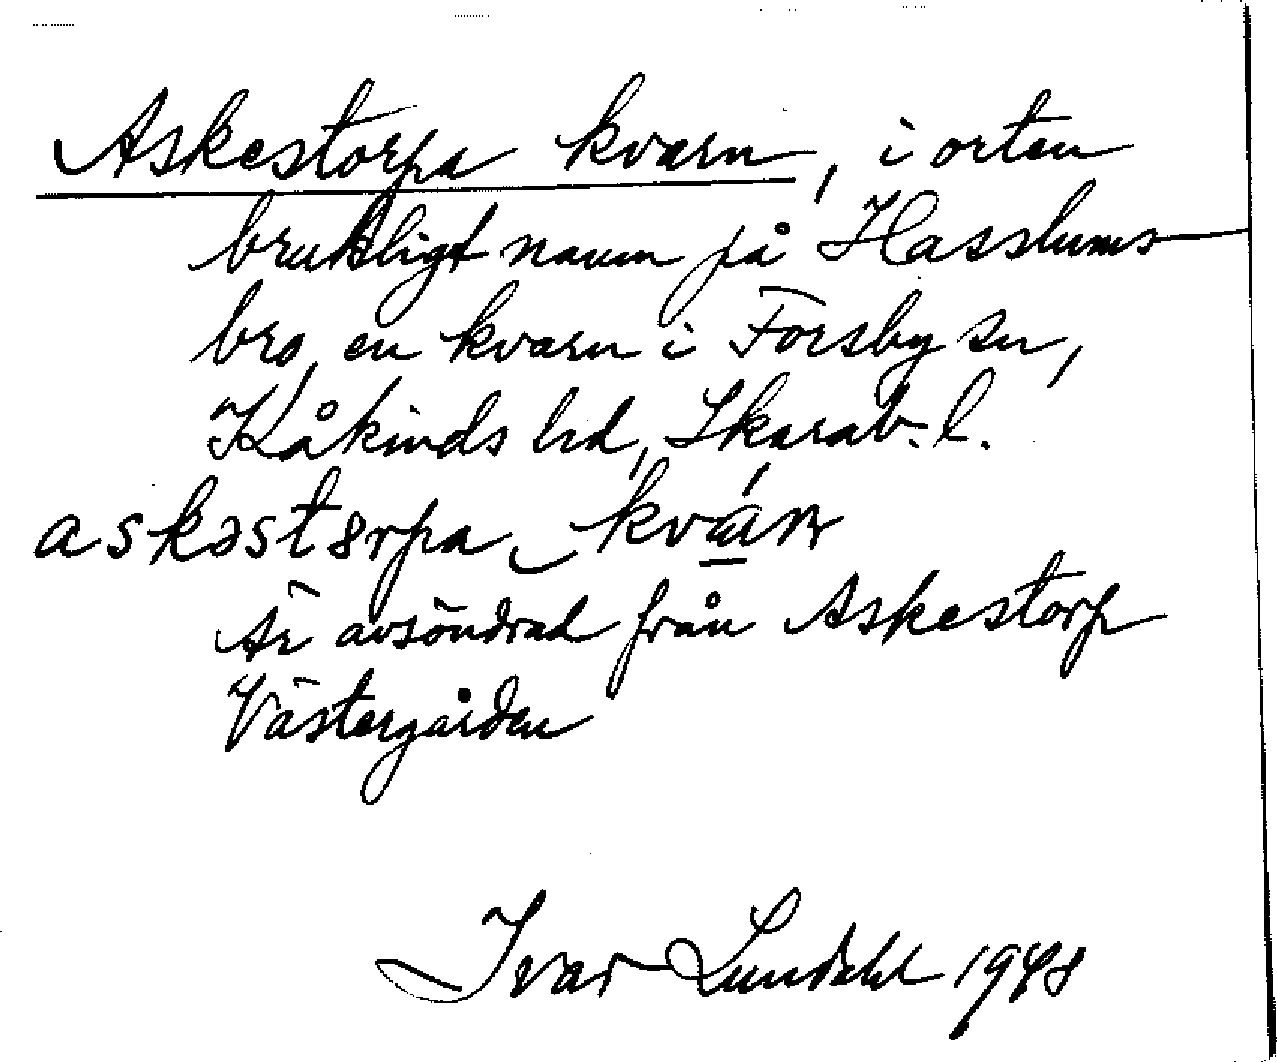 Askestorpa kvarn, i orten
brukligt namn på Hasslums
bro, en kvarn i Forsby sn,
Kåkinds hd, Skarab. l.
askəstɤrpa
Är avsöndrad från Askestorp
Västergården
Ivar Lundahl 1948